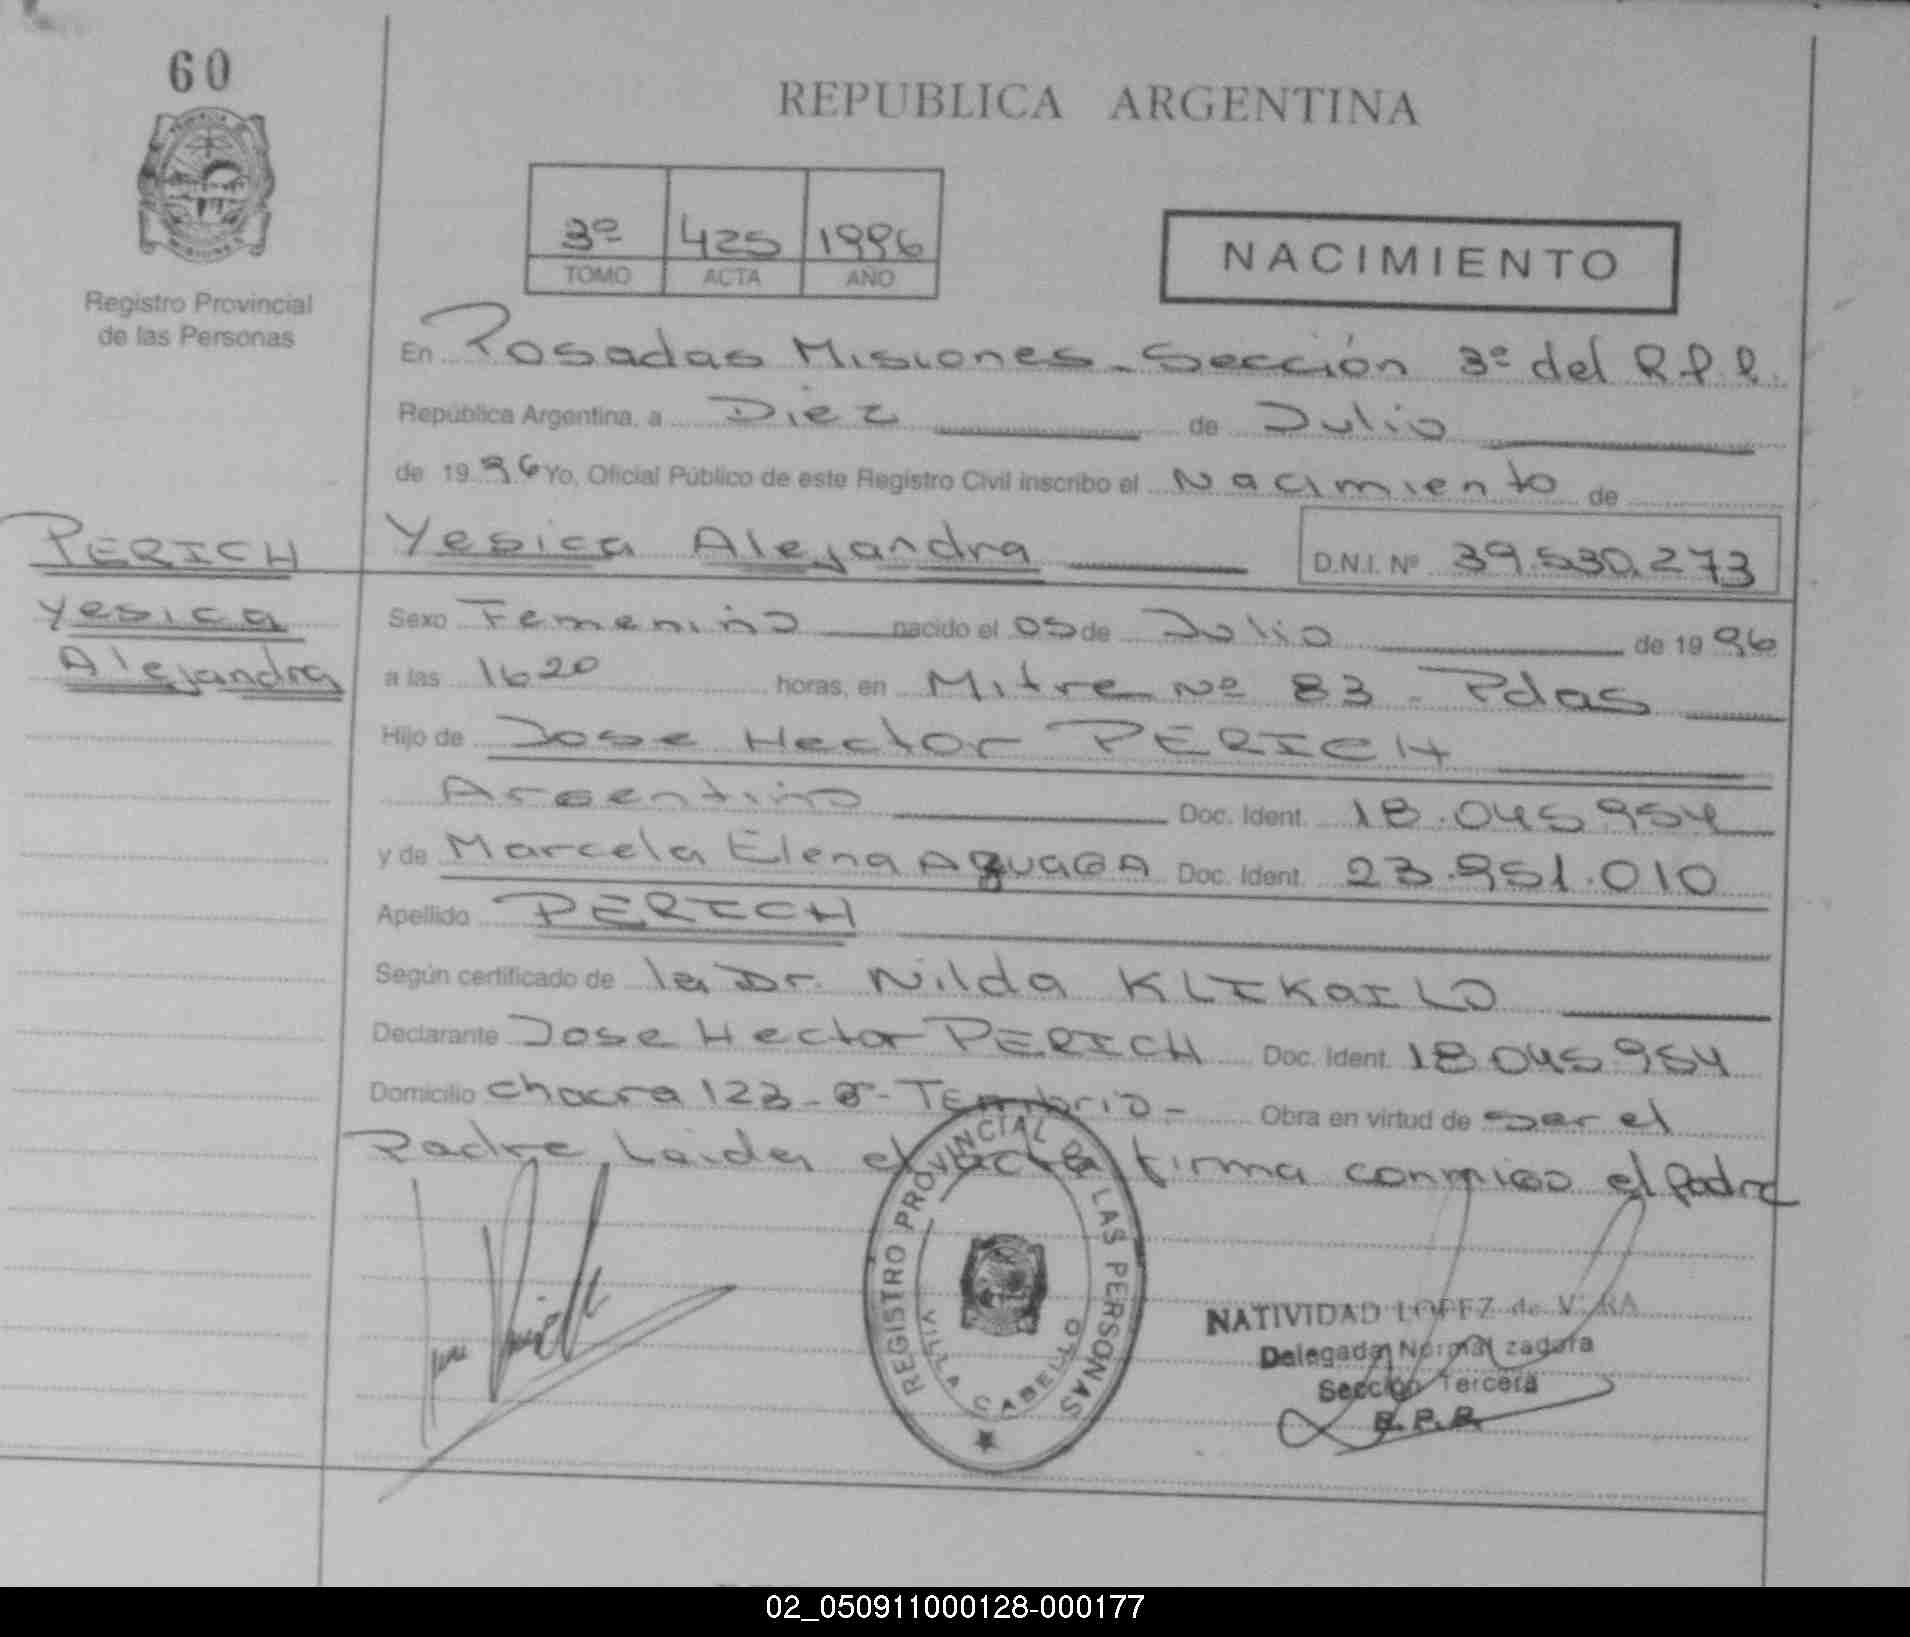 60
REPUBLICA ARGENTINA
3º 425 1996
TOMO ACTA AÑO
NACIMIENTO
Registro Provincial
de las Personas
En Posadas Misiones - Sección 3º del R.P.P.
República Argentina, a Diez de Julio
de 1996 Yo, Oficial Público de este Registro Civil inscribo el Nacimiento de
PERICH
Yesica Alejandra D.N.I. Nº 39.530.273
Yesica
Alejandra
Sexo Femenino nacido el 05 de Julio de 1996
a las 16 20 horas, en Mitre Nº 83 - Pdas
Hijo de Jose Hector PERICH
Argentino Doc. Ident. 18.045954
y de Marcela Elena Doc. Ident. 23.951.010
Apellido PERICH
Según certificado de la Dr. Nilda
Declarante Jose Hector PERICH Doc. Ident. 18.045954
Domicilio chacra 123 - Obra en virtud de ser el
Padre Leida el acta firma conmigo el Padre
REGISTRO PROVINCIAL DE LAS PERSONAS
VILLA CABELLO
NATIVIDAD LOPEZ de VERA
Delegada Normalizadora
Sección Tercera
R.P.P.
02_050911000128-000177